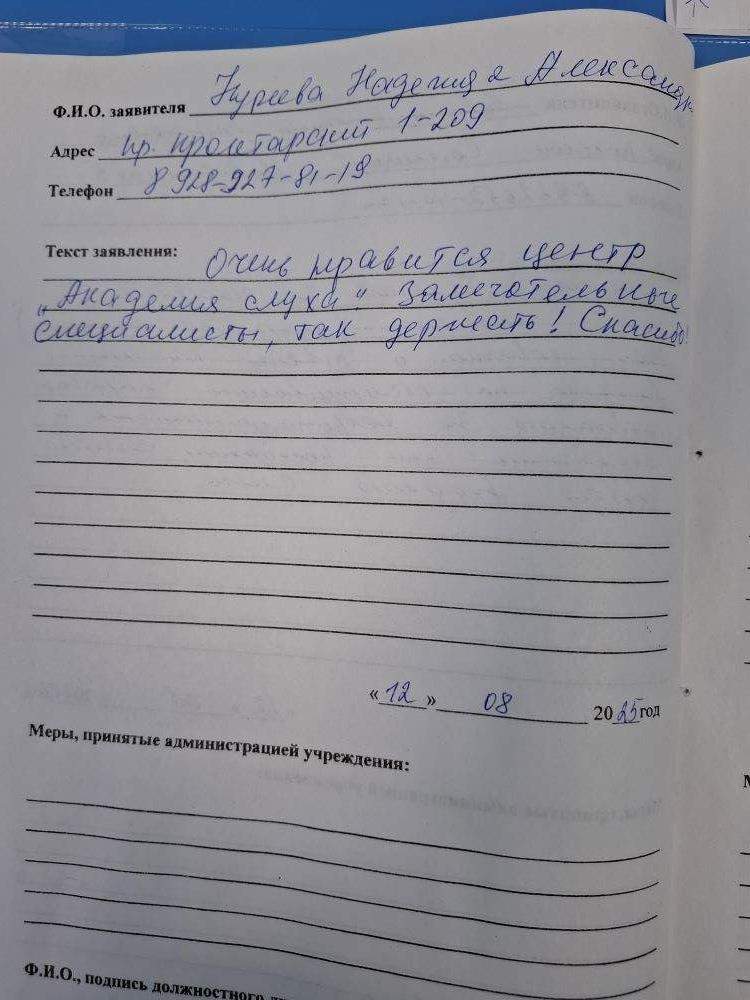 Ф.И.О. заявителя Надежда Александр
Адрес пр. Пролетарский 1-209
Телефон 8 928-927-81-19
Текст заявления: Очень нравится центр
„Академия слуха". Замечательные
специалисты, так держать! Спасибо!
«12» 08 2025 год
Меры, принятые администрацией учреждения:
Ф.И.О., подпись должностного